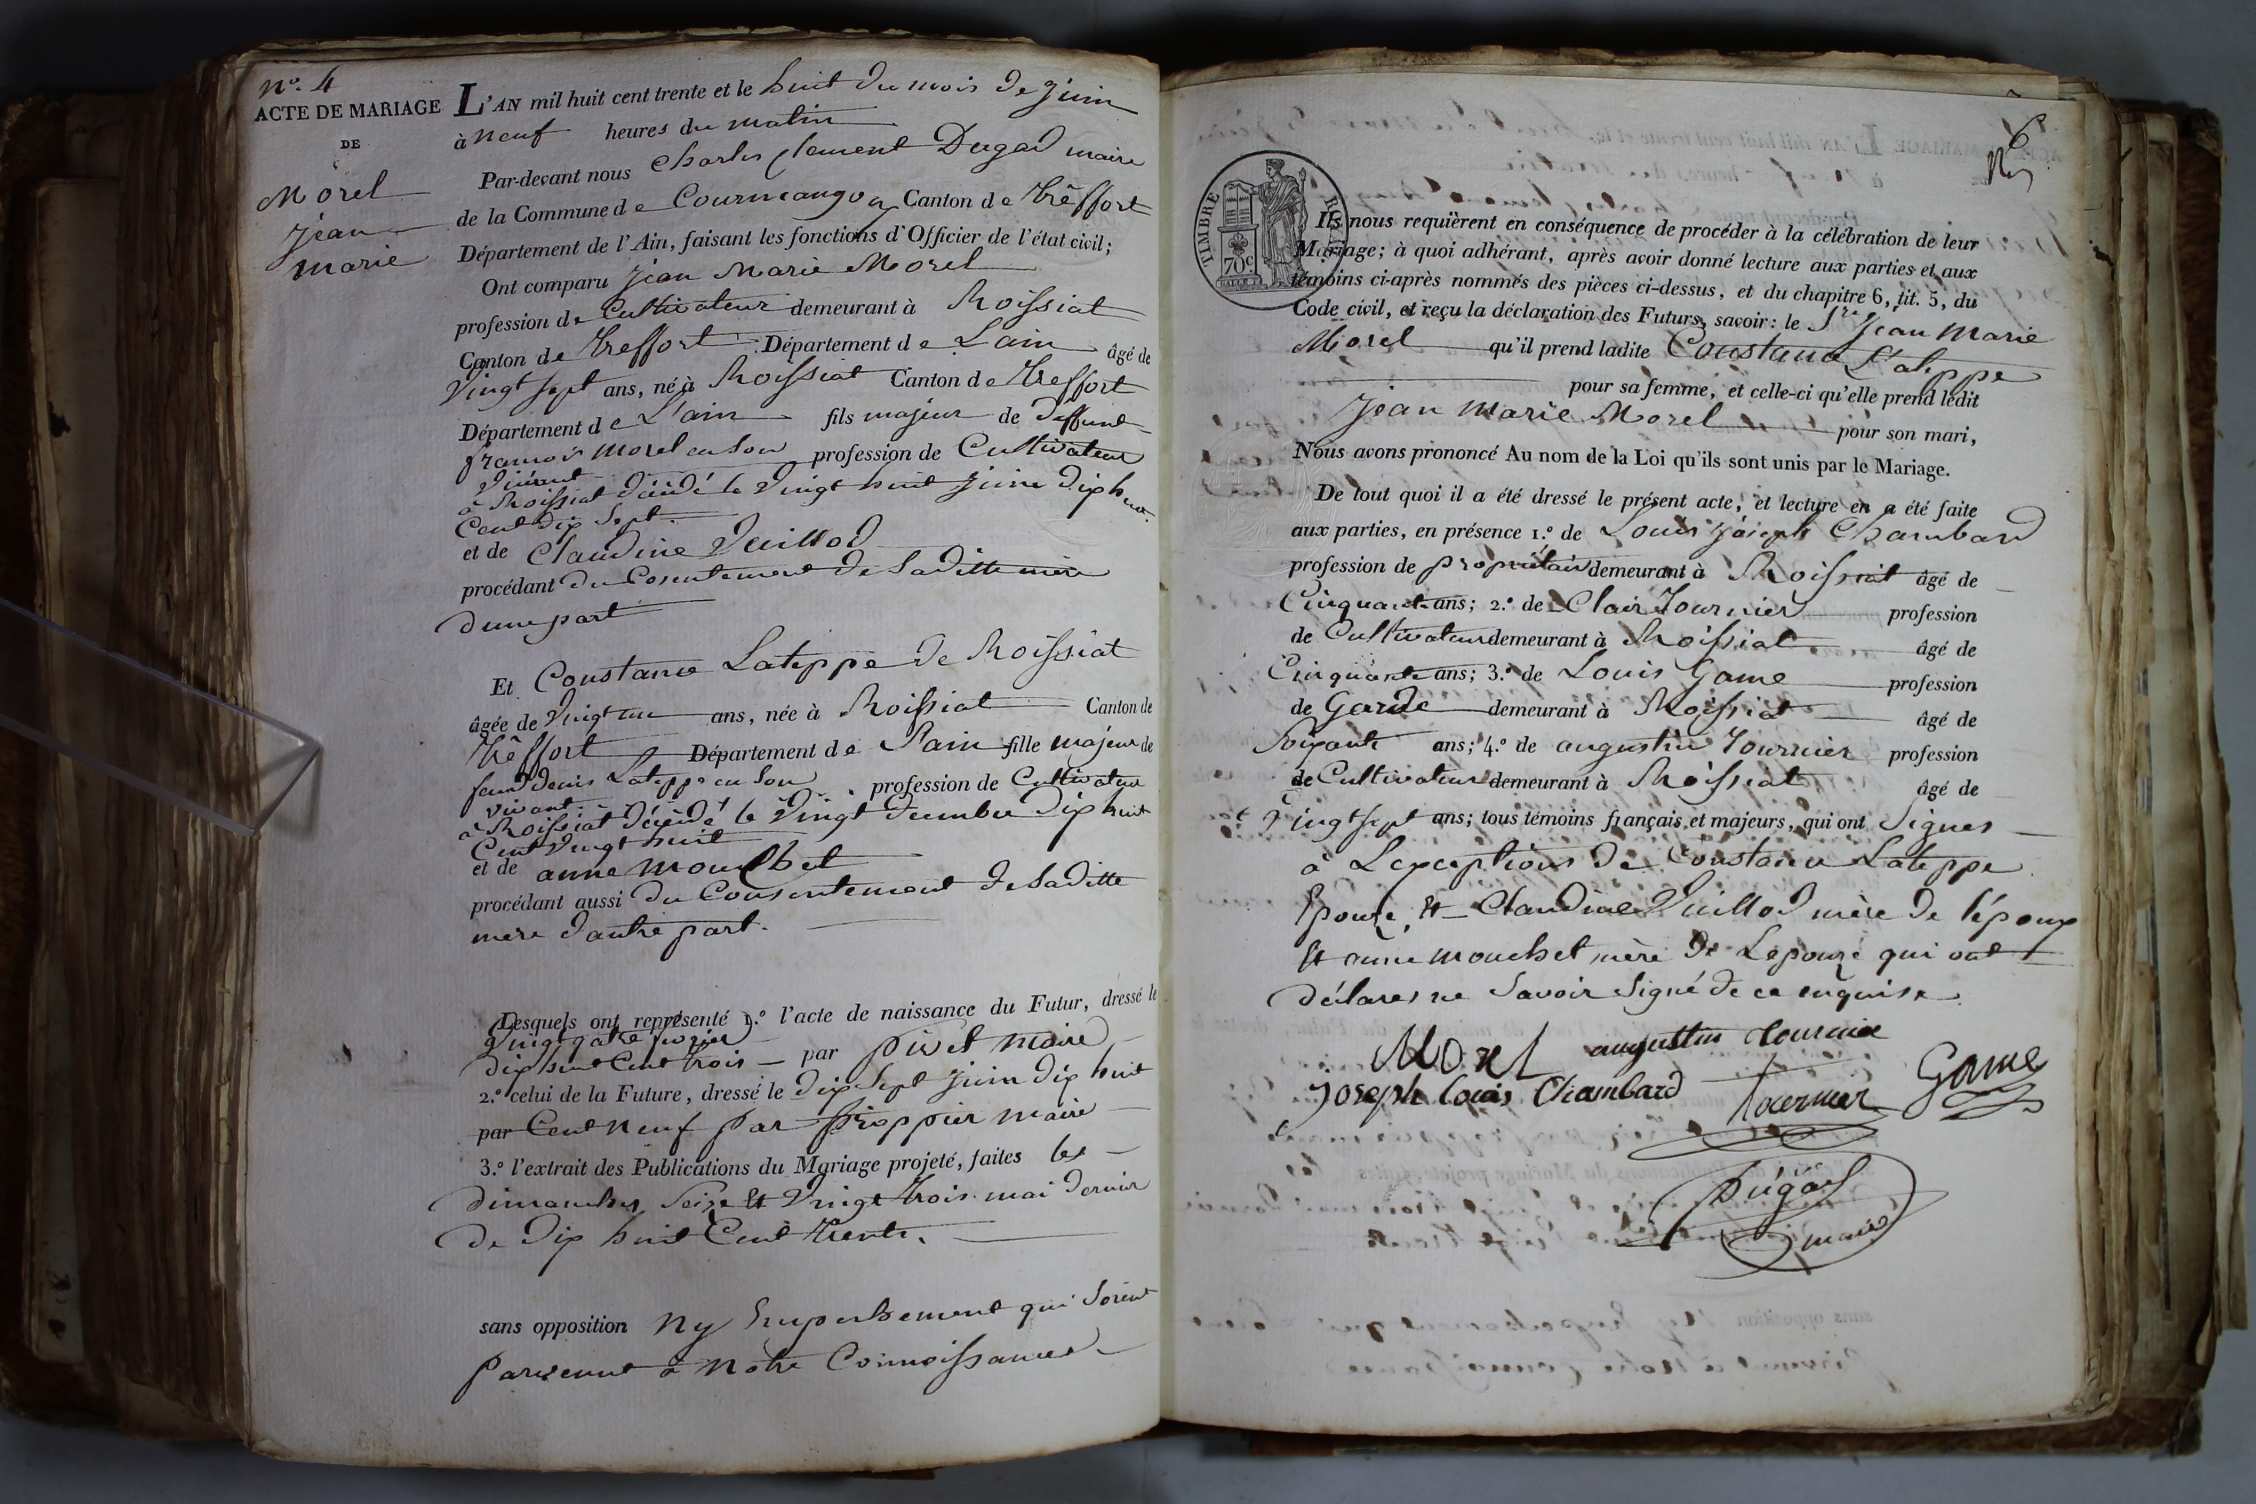 N.º 4
ACTE DE MARIAGE
DE
Morel
Jean
Marie
L'AN mil huit cent trente et le huit du mois de Juin
à neuf heures du matin
Par-devant nous Charles Clement Dugad maire
de la Commune de Courmangoux Canton de Trêffort
Département de l'Ain, faisant les fonctions d'Officier de l'état civil;
Ont comparu Jean Marie Morel
profession de Cultivateur demeurant à Roissiat
Canton de Treffort Département de Lain âgé de
Vingt sept ans, né à Roissiat Canton de Treffort
Département de L'ain fils majeur de deffunt
francois morel en son profession de Cultivateur
vivant
à Roissiat décédé le Vingt huit Juin dix huit
Cent dix Sept.
et de Claudine Vuillod
procédant du Cosentement de Saditte mère
dune part
Et Constance Lateppe de Roissiat
âgée de Vingt un ans, née à Roissiat Canton de
Trêffort Département de Lain fille majeur de
feu denis Lateppe en Son profession de Cultivateur
vivant
à Roissiat décédé le Vingt decembre dix huit
Cent Vingt huit
et de anne mouchet
procédant aussi du Consentement de Saditte
mere dautre part.
Lesquels ont représenté 1.º l'acte de naissance du Futur, dressé le
Vingt qatre
dix huit Cent trois par pivet maire
2.º celui de la Future, dressé le dix Sept Juin dix huit
par Cent neuf par maire
3.º l'extrait des Publications du Mariage projeté, faites les
dimanches Seize et Vingt trois mai dernier
de dix huit Cent trente.
sans opposition Ny Empechement qui Soient
parvenus à Notre Connoissances
6
TIMBRE ROYAL
70 C
Ils nous requièrent en conséquence de procéder à la célébration de leur
Mariage; à quoi adhérant, après avoir donné lecture aux parties et aux
témoins ci-après nommés des pièces ci-dessus, et du chapitre 6, tit. 5, du
Code civil, et reçu la déclaration des Futurs, savoir: le S.r Jean Marie
Morel qu'il prend ladite Constance Lateppe
pour sa femme, et celle-ci qu'elle prend ledit
Jean Marie Morel pour son mari,
Nous avons prononcé Au nom de la Loi qu'ils sont unis par le Mariage.
De tout quoi il a été dressé le présent acte, et lecture en a été faite
aux parties, en présence 1.º de Louis Joseph Chambard
profession de propriétair demeurant à Roissiat âgé de
Cinquante ans; 2.º de Clair Tournier profession
de Cultivateur demeurant à Roissiat âgé de
Cinquante ans; 3.º de Louis Game profession
de Garde demeurant à Roissiat âgé de
Soixante ans; 4.º de augustin Tournier profession
de Cultivateur demeurant à Roissiat âgé de
Vingt sept ans; tous témoins français et majeurs, qui ont Signes
à Lexceptions de Constance Lateppe
Epouse, Et Claudine Vuillod mère de l'époux
Et anne mouchet mère de Lepouze qui ont
déclares ne Savoir Signé de ce enquise
Morel augustin tournier
Joseph Louis Chambard tournier Game
Dugad
maire